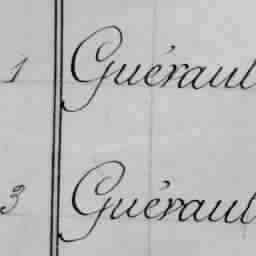 1 Guéraul
3 Guéraul